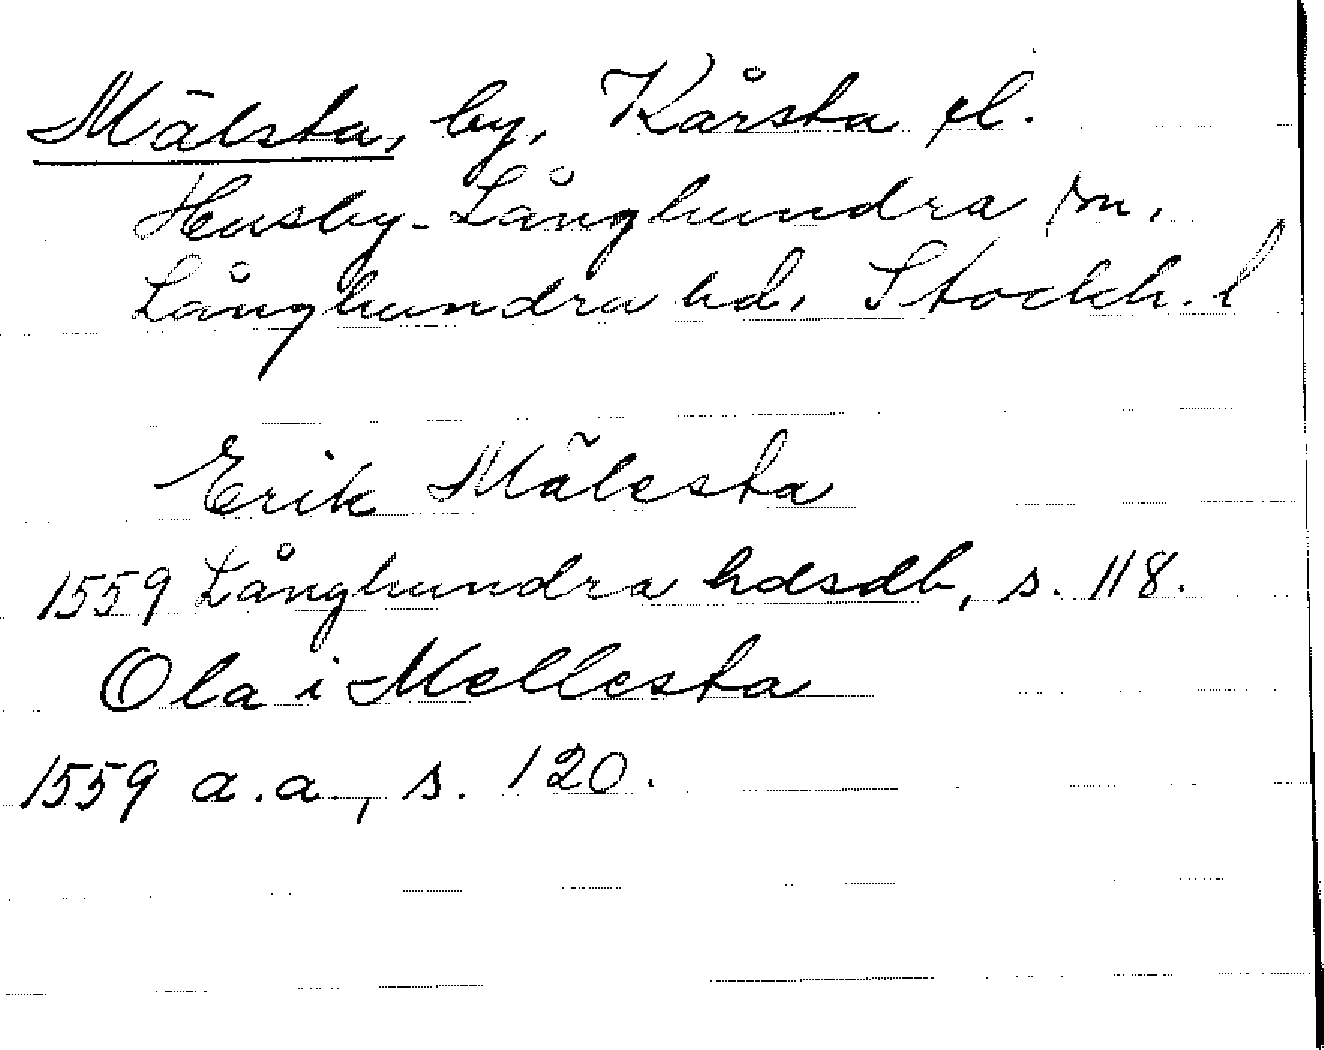 Mälsta, by, Kårsta fl.
Husby-Långhundra sn.
Långhundra hd, Stockh. l
Erik Mälesta
1559 Långhundra hdsdb, s. 118.
Ola i Mellesta
1559 a.a., s. 120.